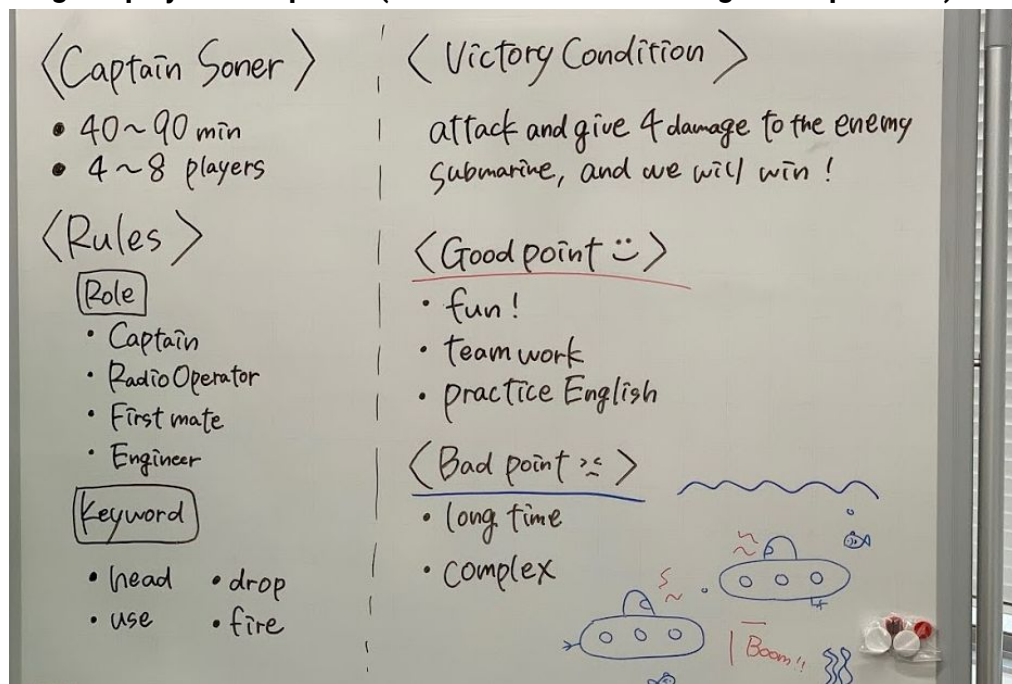 <Captain Soner>
• 40~90 min
• 4~8 players
<Rules>
Role
• Captain
• Radio Operator
• First mate
• Engineer
Keyword
• head • drop
• use • fire
<Victory Condition>
attack and give 4 damage to the enemy
submarine, and we will win!
<Good point>
• fun!
• team work
• practice English
<Bad point>
• long time
• complex
Boom!!